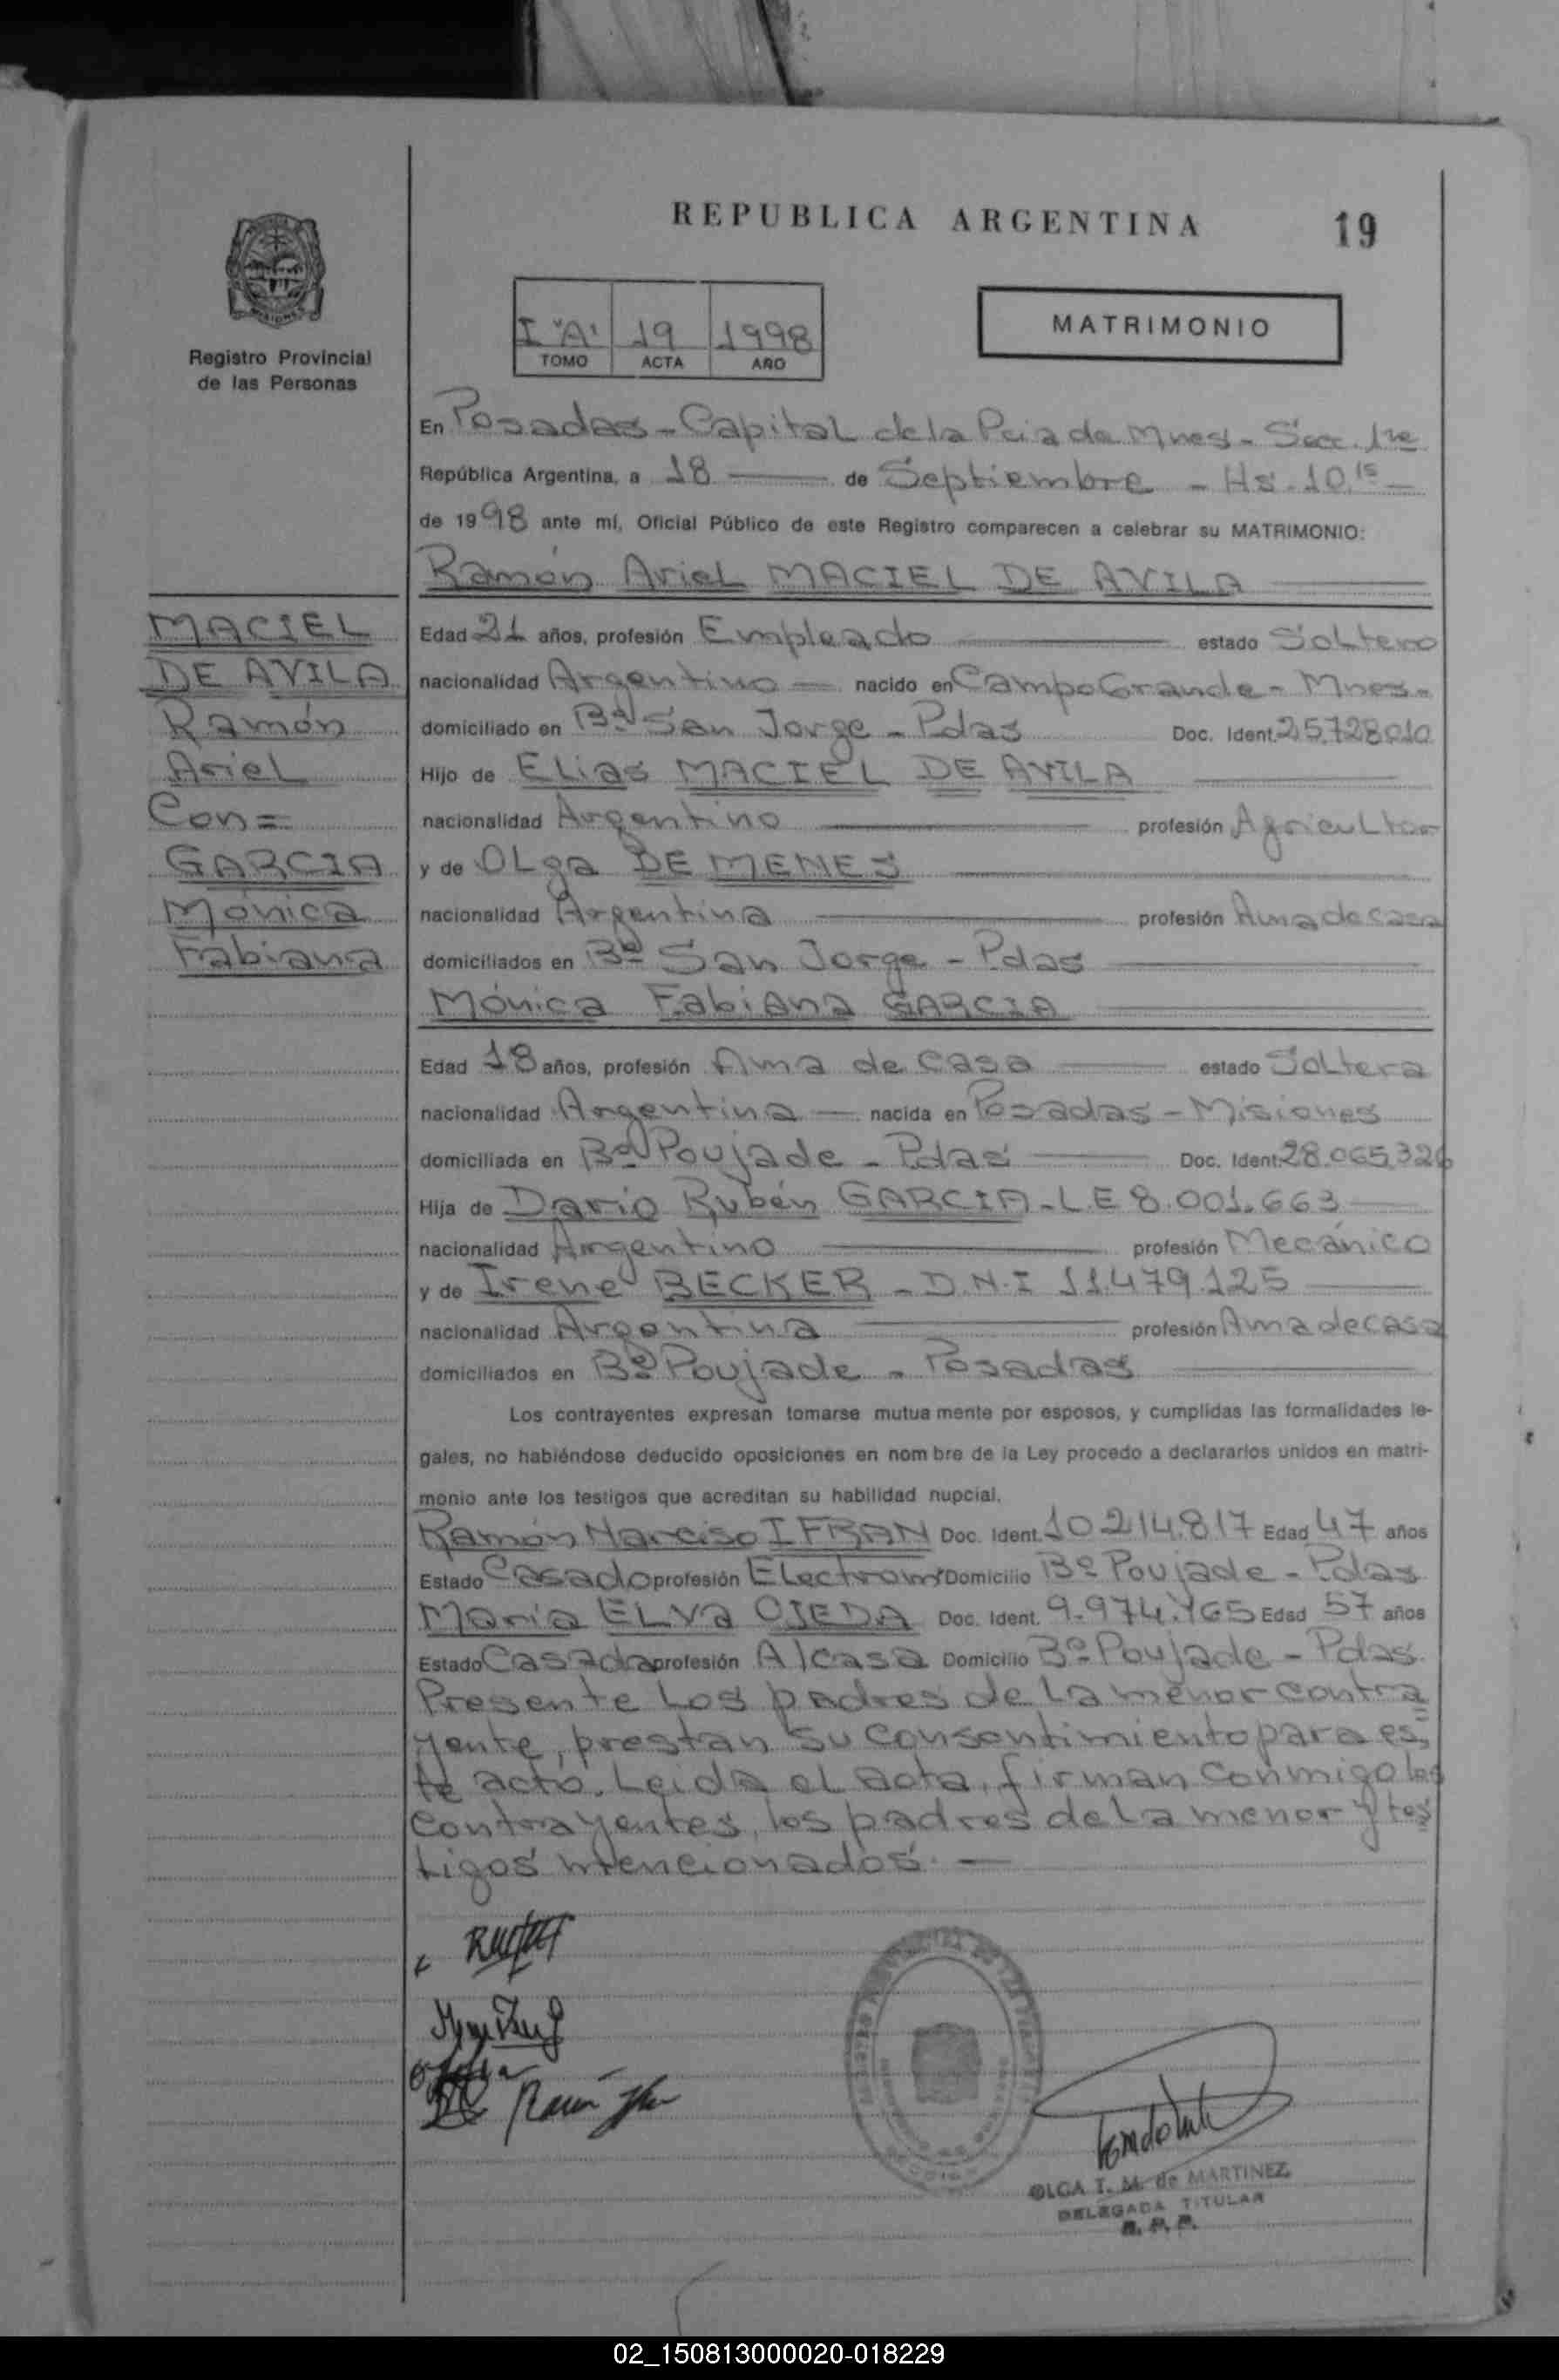 REPUBLICA ARGENTINA
19
Registro Provincial
de las Personas
I "A" 19 1998
TOMO ACTA AÑO
MATRIMONIO
En Posadas - Capital de la Pcia de Mnes - Secc. 1re
República Argentina, a 18 de Septiembre - Hs. 10.15 -
de 1998 ante mí, Oficial Público de este Registro comparecen a celebrar su MATRIMONIO:
Ramón Ariel MACIEL DE AVILA
MACIEL
DE AVILA
Ramón
Ariel
Con=
GARCIA
Mónica
Fabiana
Edad 21 años, profesión Empleado estado Soltero
nacionalidad Argentino nacido en Campo Grande - Mnes.
domiciliado en Bº San Jorge - Pdas Doc. Ident. 25.728010
Hijo de Elias MACIEL DE AVILA
nacionalidad Argentino profesión Agricultor
y de Olga DE MENES
nacionalidad Argentina profesión Ama de casa
domiciliados en Bº San Jorge - Pdas
Mónica Fabiana GARCIA
Edad 18 años, profesión Ama de casa estado Soltera
nacionalidad Argentina nacida en Posadas - Misiones
domiciliada en Bº Poujade - Pdas Doc. Ident. 28.065.326
Hija de Dario Rubén GARCIA - L.E 8.001.663
nacionalidad Argentino profesión Mecánico
y de Irene BECKER - D.N.I 11.479.125
nacionalidad Argentina profesión Ama de casa
domiciliados en Bº Poujade - Posadas
Los contrayentes expresan tomarse mutua mente por esposos, y cumplidas las formalidades le-
gales, no habiéndose deducido oposiciones en nom bre de la Ley procedo a declararlos unidos en matri-
monio ante los testigos que acreditan su habilidad nupcial.
Ramón Narciso IFRAN Doc. Ident. 10.214.817 Edad 47 años
Estado Casado profesión Domicilio Bº Poujade - Pdas
Maria ELVA OJEDA Doc. Ident. 9.974.165 Edad 57 años
Estado Casada profesión A/casa Domicilio Bº Poujade - Pdas.
Presente los padres de la menor contra
yente, prestan su consentimiento para es,
te acto. Leida el acta, firman conmigo los
contrayentes, los padres de la menor y tes
tigos mencionados. -
OLGA T. M. de MARTINEZ
DELEGADA TITULAR
R. P. P.
02_150813000020-018229